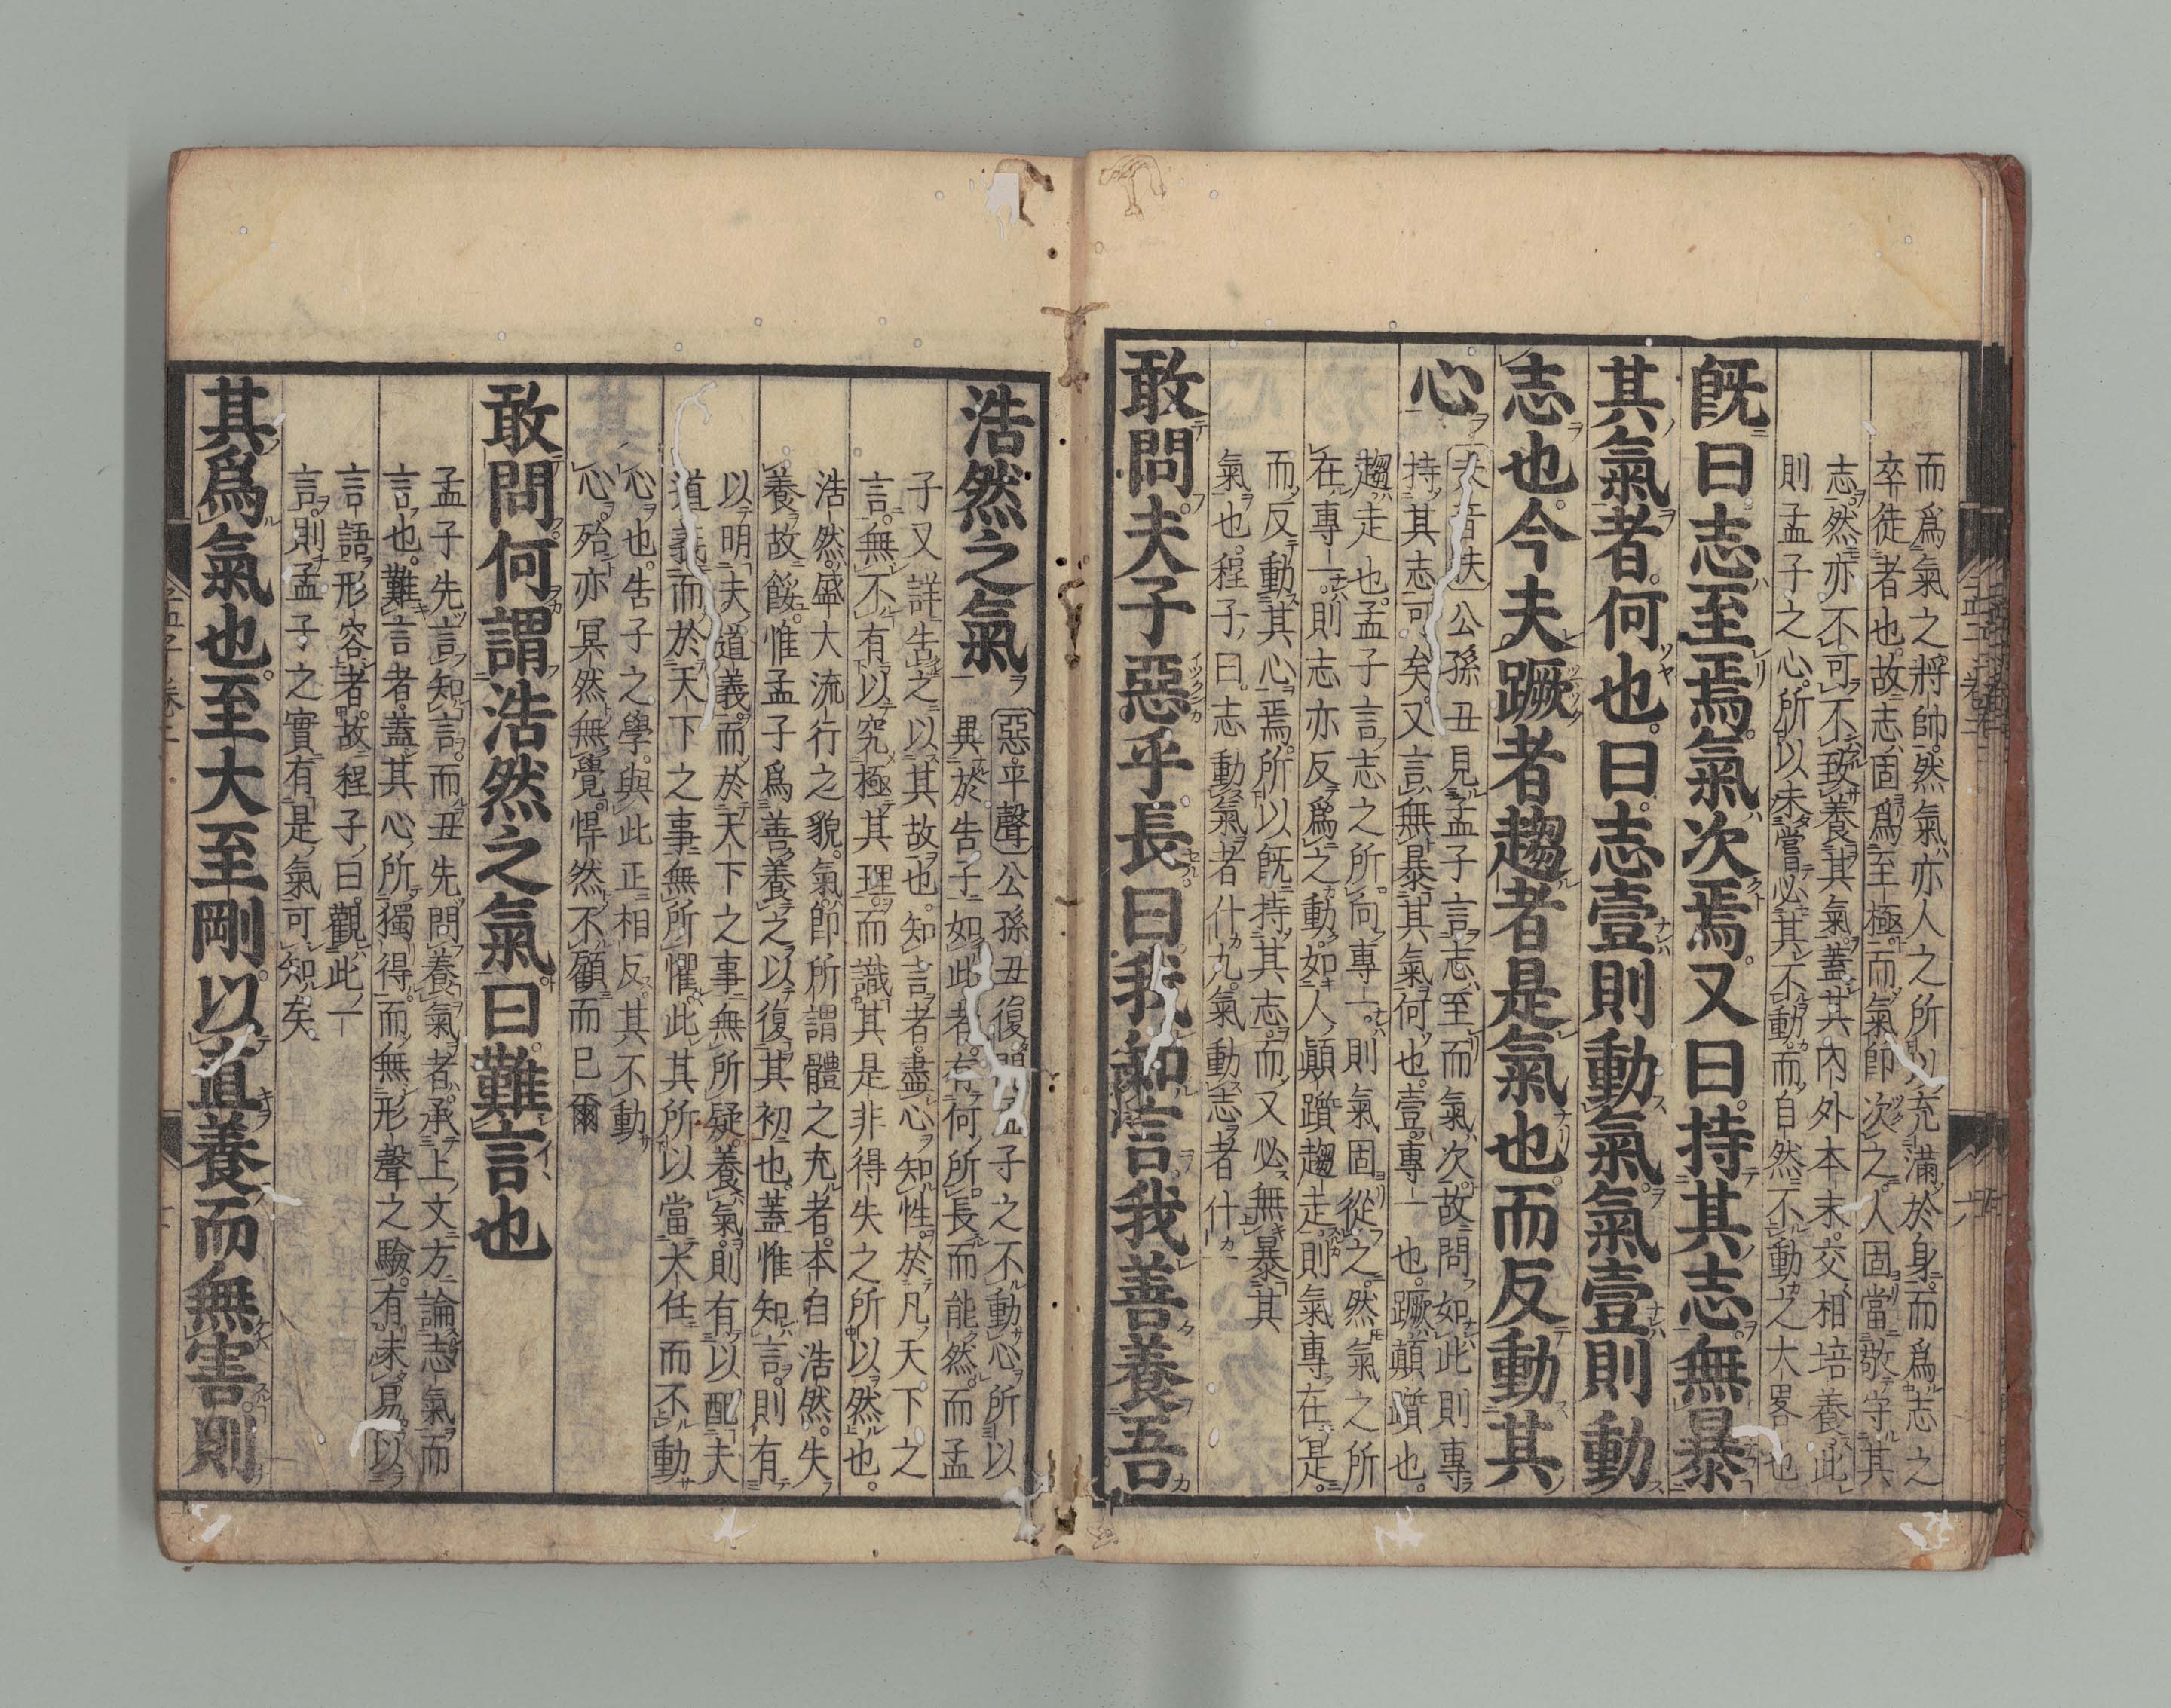 而爲氣之將帥然氣亦人之所以充滿於身而爲志之
卒徒者也故志固爲至極而氣卽次之人固當敬守其
志然亦不可不致養其氣蓋其內外本末交相培養此
則孟子之心所以未嘗必其不動而自然不動之大畧也
旣曰志至焉氣次焉又曰持其志無暴
其氣者何也曰志壹則動氣氣壹則動
志也今夫蹶者趨者是氣也而反動其
心
夫音扶公孫丑見孟子言志至而氣次故問如此則專
持其志可矣又言無暴其氣何也壹專一也蹶顚躓也
趨走也孟子言志之所向專一則氣固從之然氣之所
在專一則志亦反爲之動如人顚躓趨走則氣專在是
而反動其心焉所以旣持其志而又必無暴其
氣也程子曰志動氣者什九氣動志者什一
敢問夫子惡乎長曰我知言我善養吾
浩然之氣
惡平聲公孫丑復問孟子之不動心所以
異於告子如此者有何所長而能然而孟
子又詳告之以其故也知言者盡心知性於凡天下之
言無不有以究極其理而識其是非得失之所以然也
浩然盛大流行之貌氣卽所謂體之充者本自浩然失
養故餒惟孟子爲善養之以復其初也蓋惟知言則有
以明夫道義而於天下之事無所疑養氣則有以配夫
道義而於天下之事無所懼此其所以當大任而不動
心也告子之學與此正相反其不動
心殆亦冥然無覺悍然不顧而已爾
敢問何謂浩然之氣曰難言也
孟子先言知言而丑先問養氣者承上文方論志氣而
言也難言者蓋其心所獨得而無形聲之驗有未易以
言語形容者故程子曰觀此一
言則孟子之實有是氣可知矣
其爲氣也至大至剛以直養而無害則